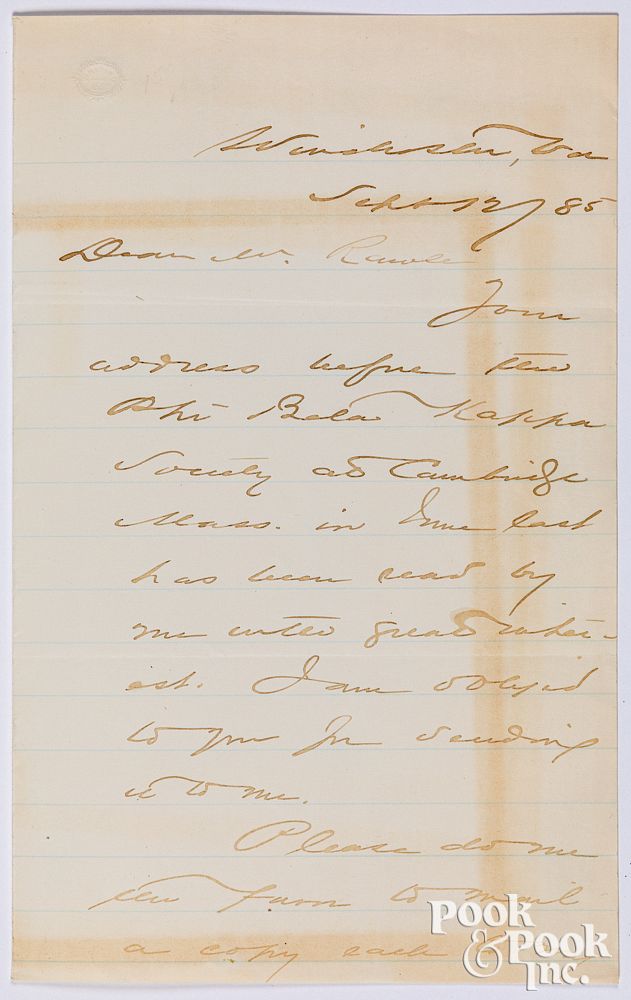 Winchester, Va
Sept 12/85
Dear Mr. Rawle
Your
address before the
Phi Beta Kappa
Society at Cambridge
Mass. in June last
has been read by
me with great inter-
est. I am obliged
to you for sending
it to me.
Please do me
the favor to mail
a copy each
POOK
& POOK
INC.